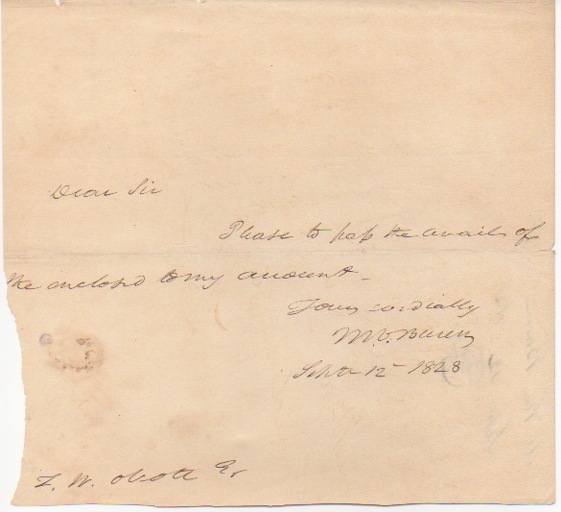 Dear Sir
Please to pass the avails of
the enclosed to my account -
Yours cordially
M V. Buren
Septr 12 - 1828
T. W. Olcott Esr